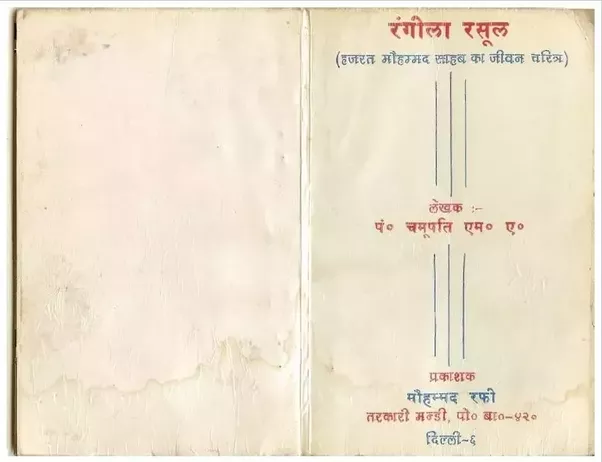 रंगीला रसूल
(हजरत मौहम्मद साहब का जीवन चरित्र)
लेखक :-
पं० चमूपति एम० ए०
प्रकाशक
मौहम्मद रफी
तरकारी मन्डी, पो० बा०-४२०
दिल्ली-६